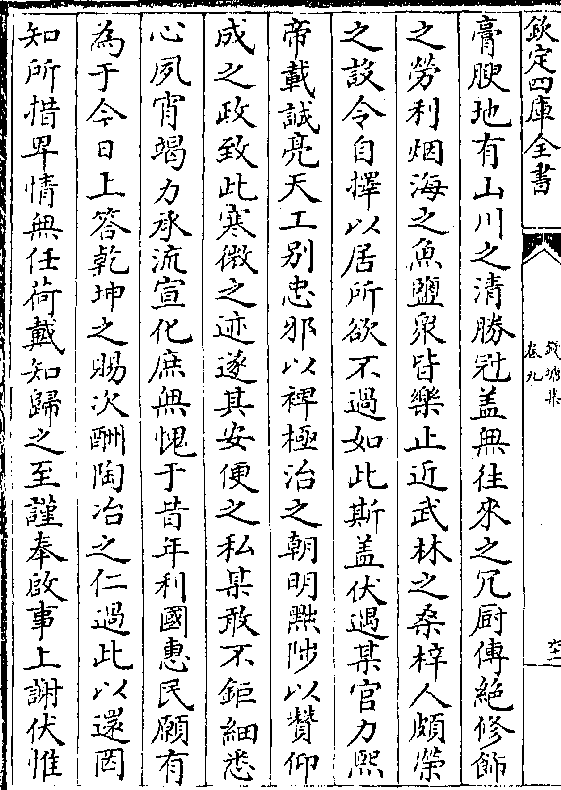 欽定四庫全書
錢塘集
卷九
膏腴地有山川之清勝冠盖無往來之冗厨傳絶修飾
之勞利烟海之魚鹽衆皆樂止近武林之桑梓人頗榮
之設令自擇以居所欲不過如此斯盖伏遇某官力熙
帝載誠亮天工别忠邪以裨極治之朝明黜陟以贊仰
成之政致此寒微之迹遂其安便之私某敢不鉅細悉
心夙宵竭力承流宣化庶無愧于昔年利國惠民願有
為于今日上答乾坤之賜次酬陶冶之仁過此以還罔
知所措畢情無任荷戴知歸之至謹奉啟事上謝伏惟